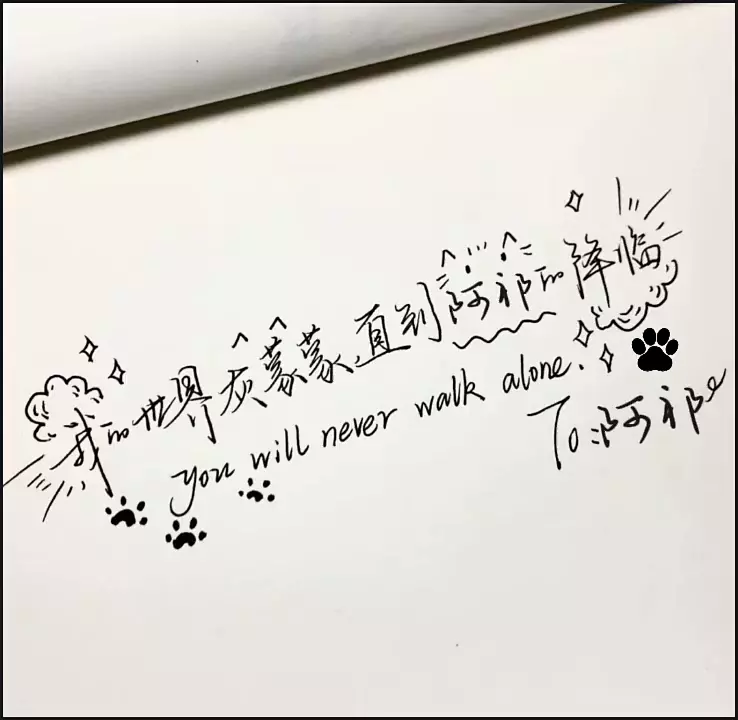 我的世界灰蒙蒙,直到阿祁的降临
you will never walk alone.
To:阿祁